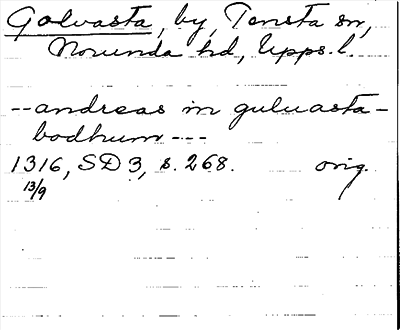 Golvasta, by, Tensta sn,
Norunda hd, Upps. l.
-- andreas in guluasta-
bodhum ---
1316, SD 3, s. 268. orig.
13/9